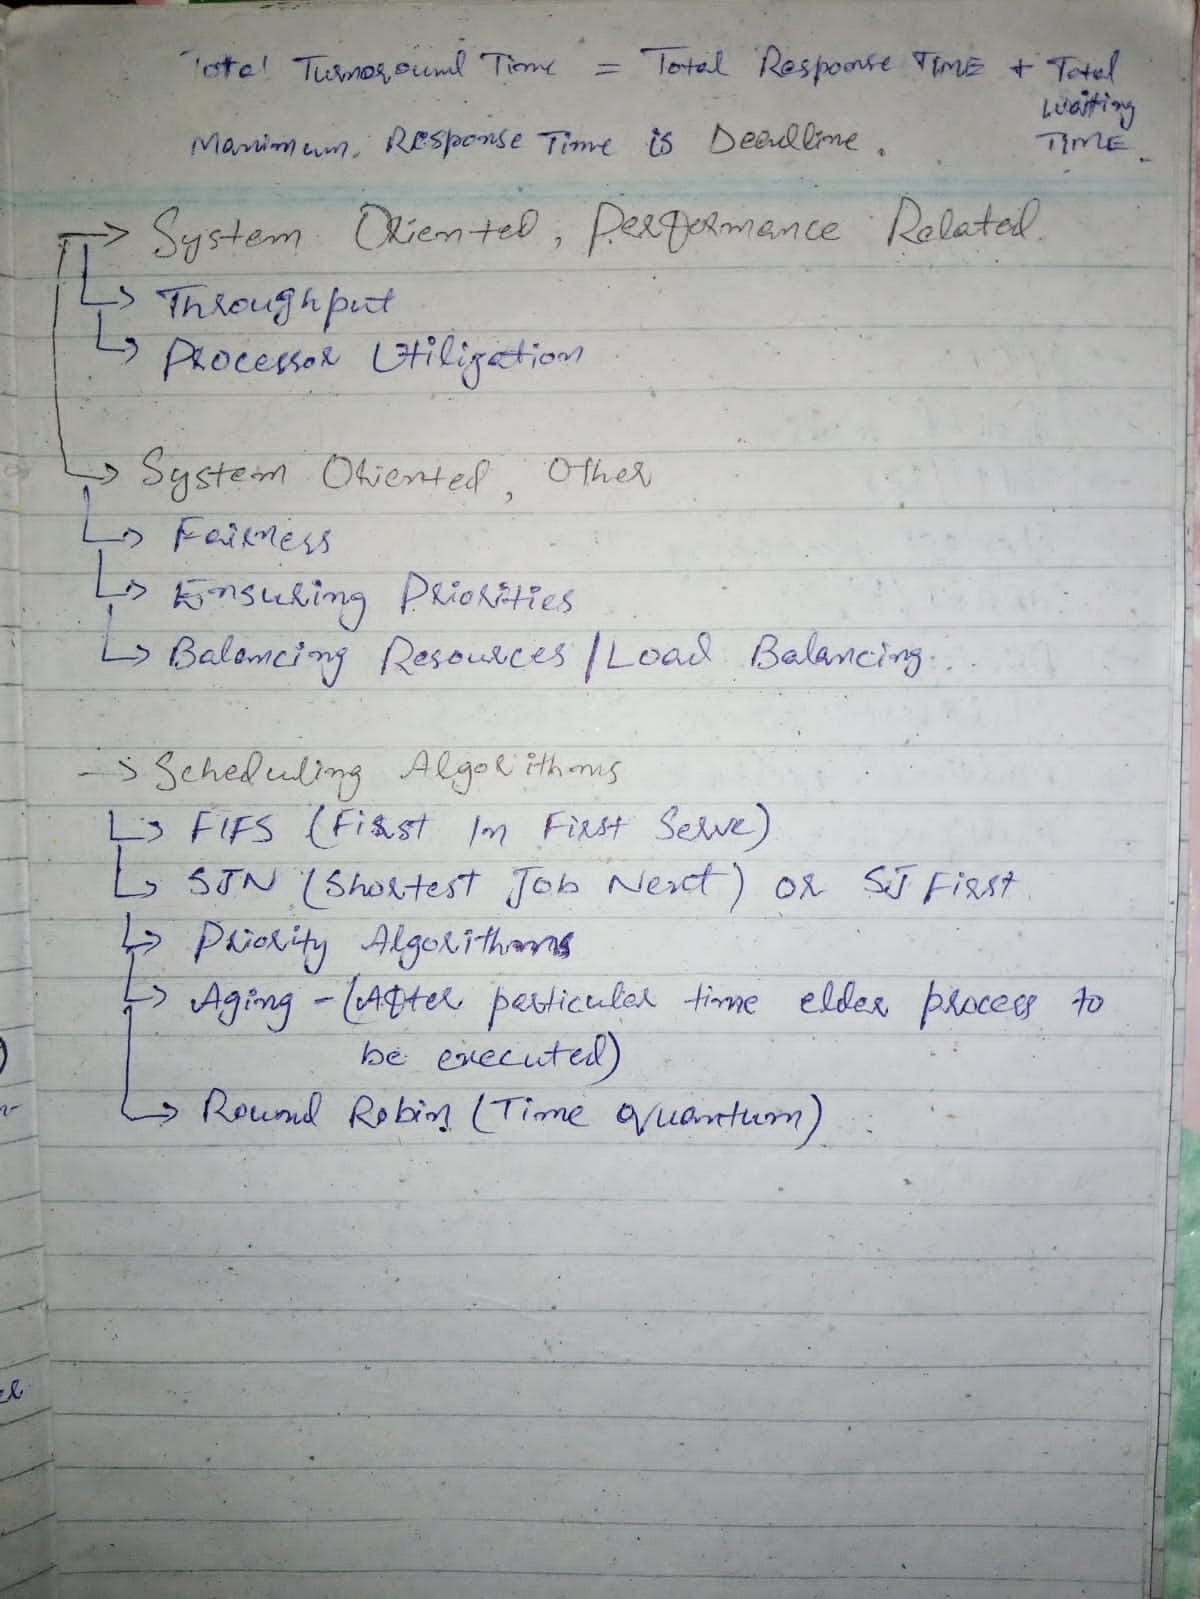 Total Turnaround Time = Total Response TIME + Total
Waiting
Maximum. Response Time is Deadline. TIME.
→ System Oriented, Performance Related.
↳ Throughput
↳ Processor Utilization
↳ System Oriented, Other
↳ Fairness
↳ Ensuring Priorities
↳ Balancing Resources / Load Balancing.
→ Scheduling Algorithms
↳ FIFS (First In First Serve)
↳ SJN (Shortest Job Next) or SJ First
↳ Priority Algorithms
↳ Aging - (After particular time elder process to
be executed)
↳ Round Robin (Time quantum)